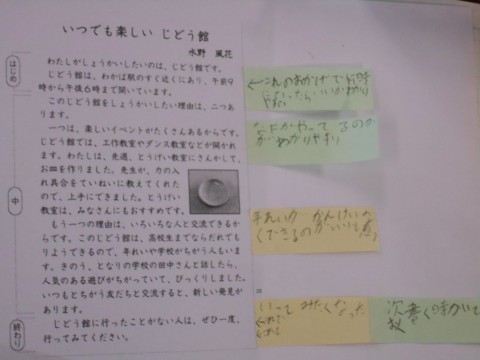 いつでも楽しい じどう館
水野 風花
はじめ
わたしがしょうかいしたいのは、じどう館です。
じどう館は、わかば駅のすぐ近くにあり、午前9
時から午後6時まで開いています。
このじどう館をしょうかいしたい理由は、二つあ
ります。
中
一つは、楽しいイベントがたくさんあるからです。
じどう館では、工作教室やダンス教室などが開かれ
ます。わたしは、先週、とうげい教室にさんかして、
お皿を作りました。先生が、力の入
れ具合をていねいに教えてくれた
ので、上手にできました。とうげい
教室は、みなさんにもおすすめです。
もう一つの理由は、いろいろな人と交流できるか
らです。このじどう館は、高校生までならだれでも
りようできるので、年れいや学校がちがう人もいま
す。きのう、となりの学校の田中さんと話したら、
人気のある遊びがちがっていて、びっくりしました。
いつもとちがう友だちと交流すると、新しい発見が
あります。
終わり
じどう館に行ったことがない人は、ぜひ一度、
行ってみてください。
←これのおかげで何時
がわかりやすい
年れいかんけいな
くできるのがいい点
いってみたくなった
次書く時